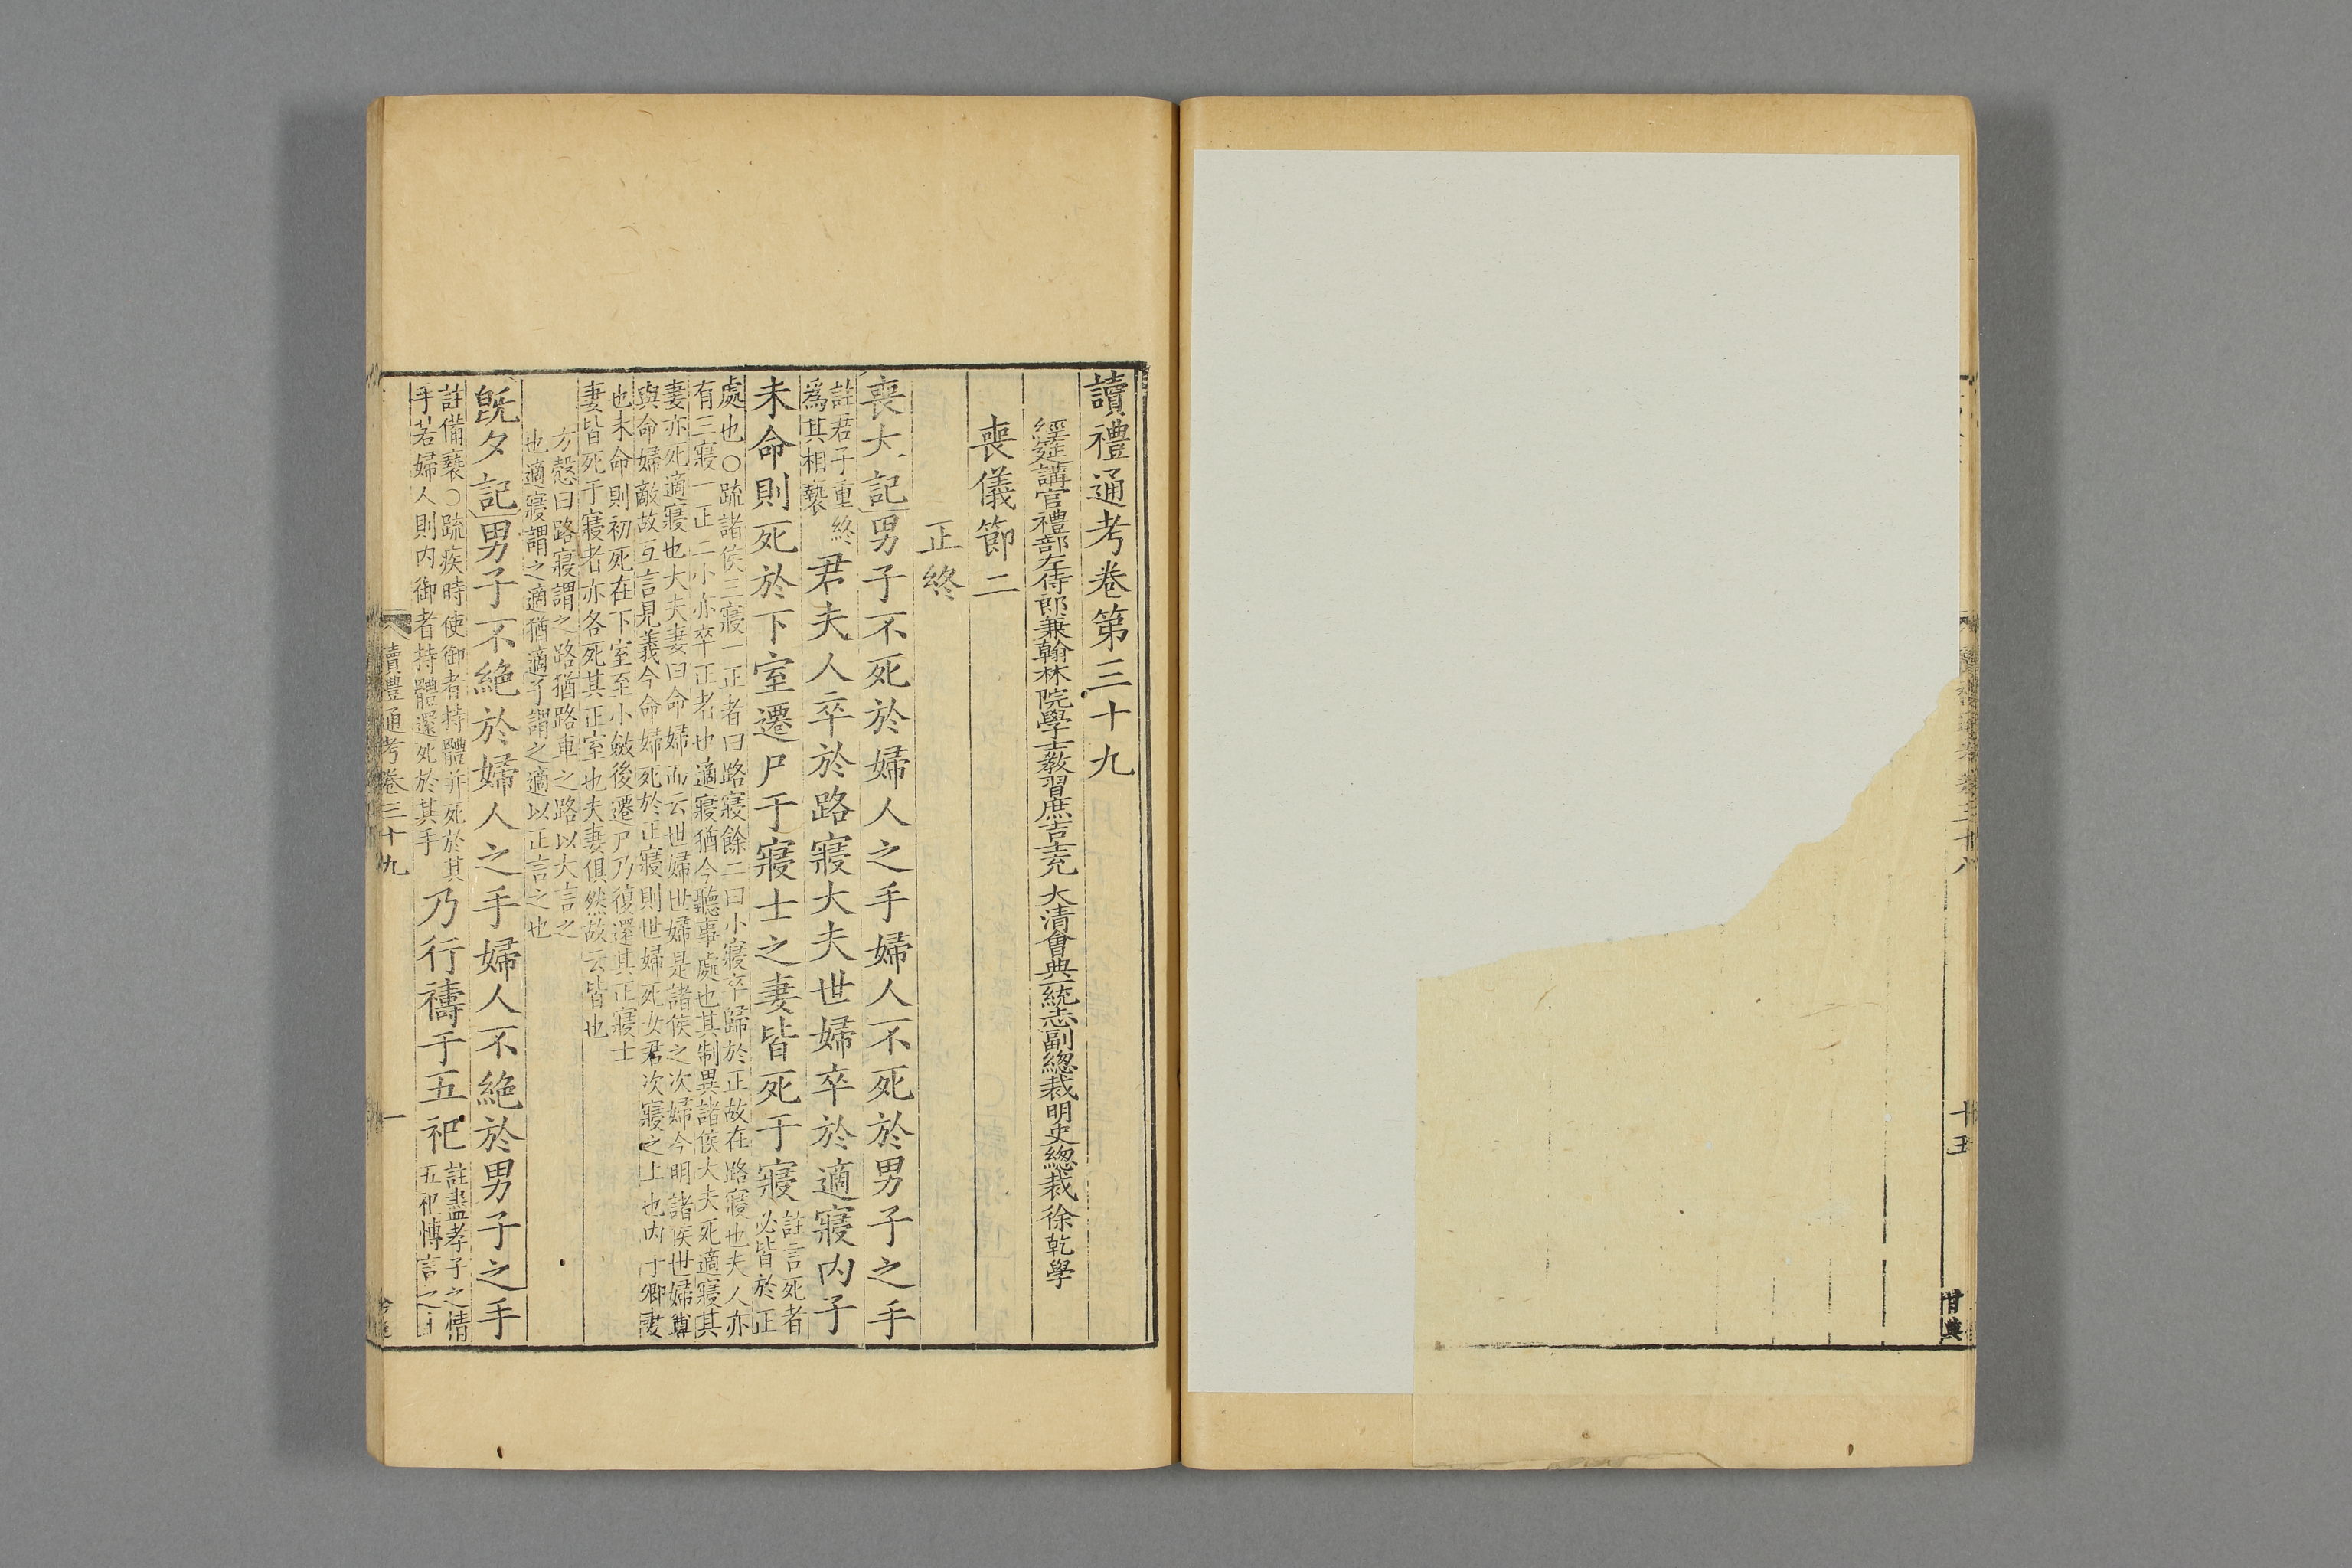 十五
甘典
讀禮通考卷第三十九
經筵講官禮部左侍郎兼翰林院學士教習庶吉士充 大清會典一統志副總裁明史總裁徐乾學
喪儀節二
正終
喪大記男子不死於婦人之手婦人不死於男子之手
註君子重終
爲其相褻
君夫人卒於路寢大夫世婦卒於適寢內子
未命則死於下室遷尸于寢士之妻皆死于寢
註言死者
必皆於正
處也○疏諸侯三寢一正者曰路寢餘二曰小寢卒歸於正故在路寢也夫人亦
有三寢一正二小亦卒正者也適寢猶今聽事處也其制異諸侯大夫死適寢其
妻亦死適寢也大夫妻曰命婦而云世婦世婦是諸侯之次婦今明諸侯世婦尊
與命婦敵故互言見義今命婦死於正寢則世婦死女君次寢之上也內子卿妻
也未命則初死在下室至小斂後遷尸乃復還其正寢士
妻皆死于寢者亦各死其正室也夫妻俱然故云皆也
方慤曰路寢謂之路猶路車之路以大言之
也適寢謂之適猶適子謂之適以正言之也
旣夕記男子不絶於婦人之手婦人不絶於男子之手
註備褻○疏疾時使御者持體并死於其
手若婦人則內御者持體還死於其手
乃行禱于五祀
註盡孝子之情
五祀博言之士
讀禮通考卷三十九
一